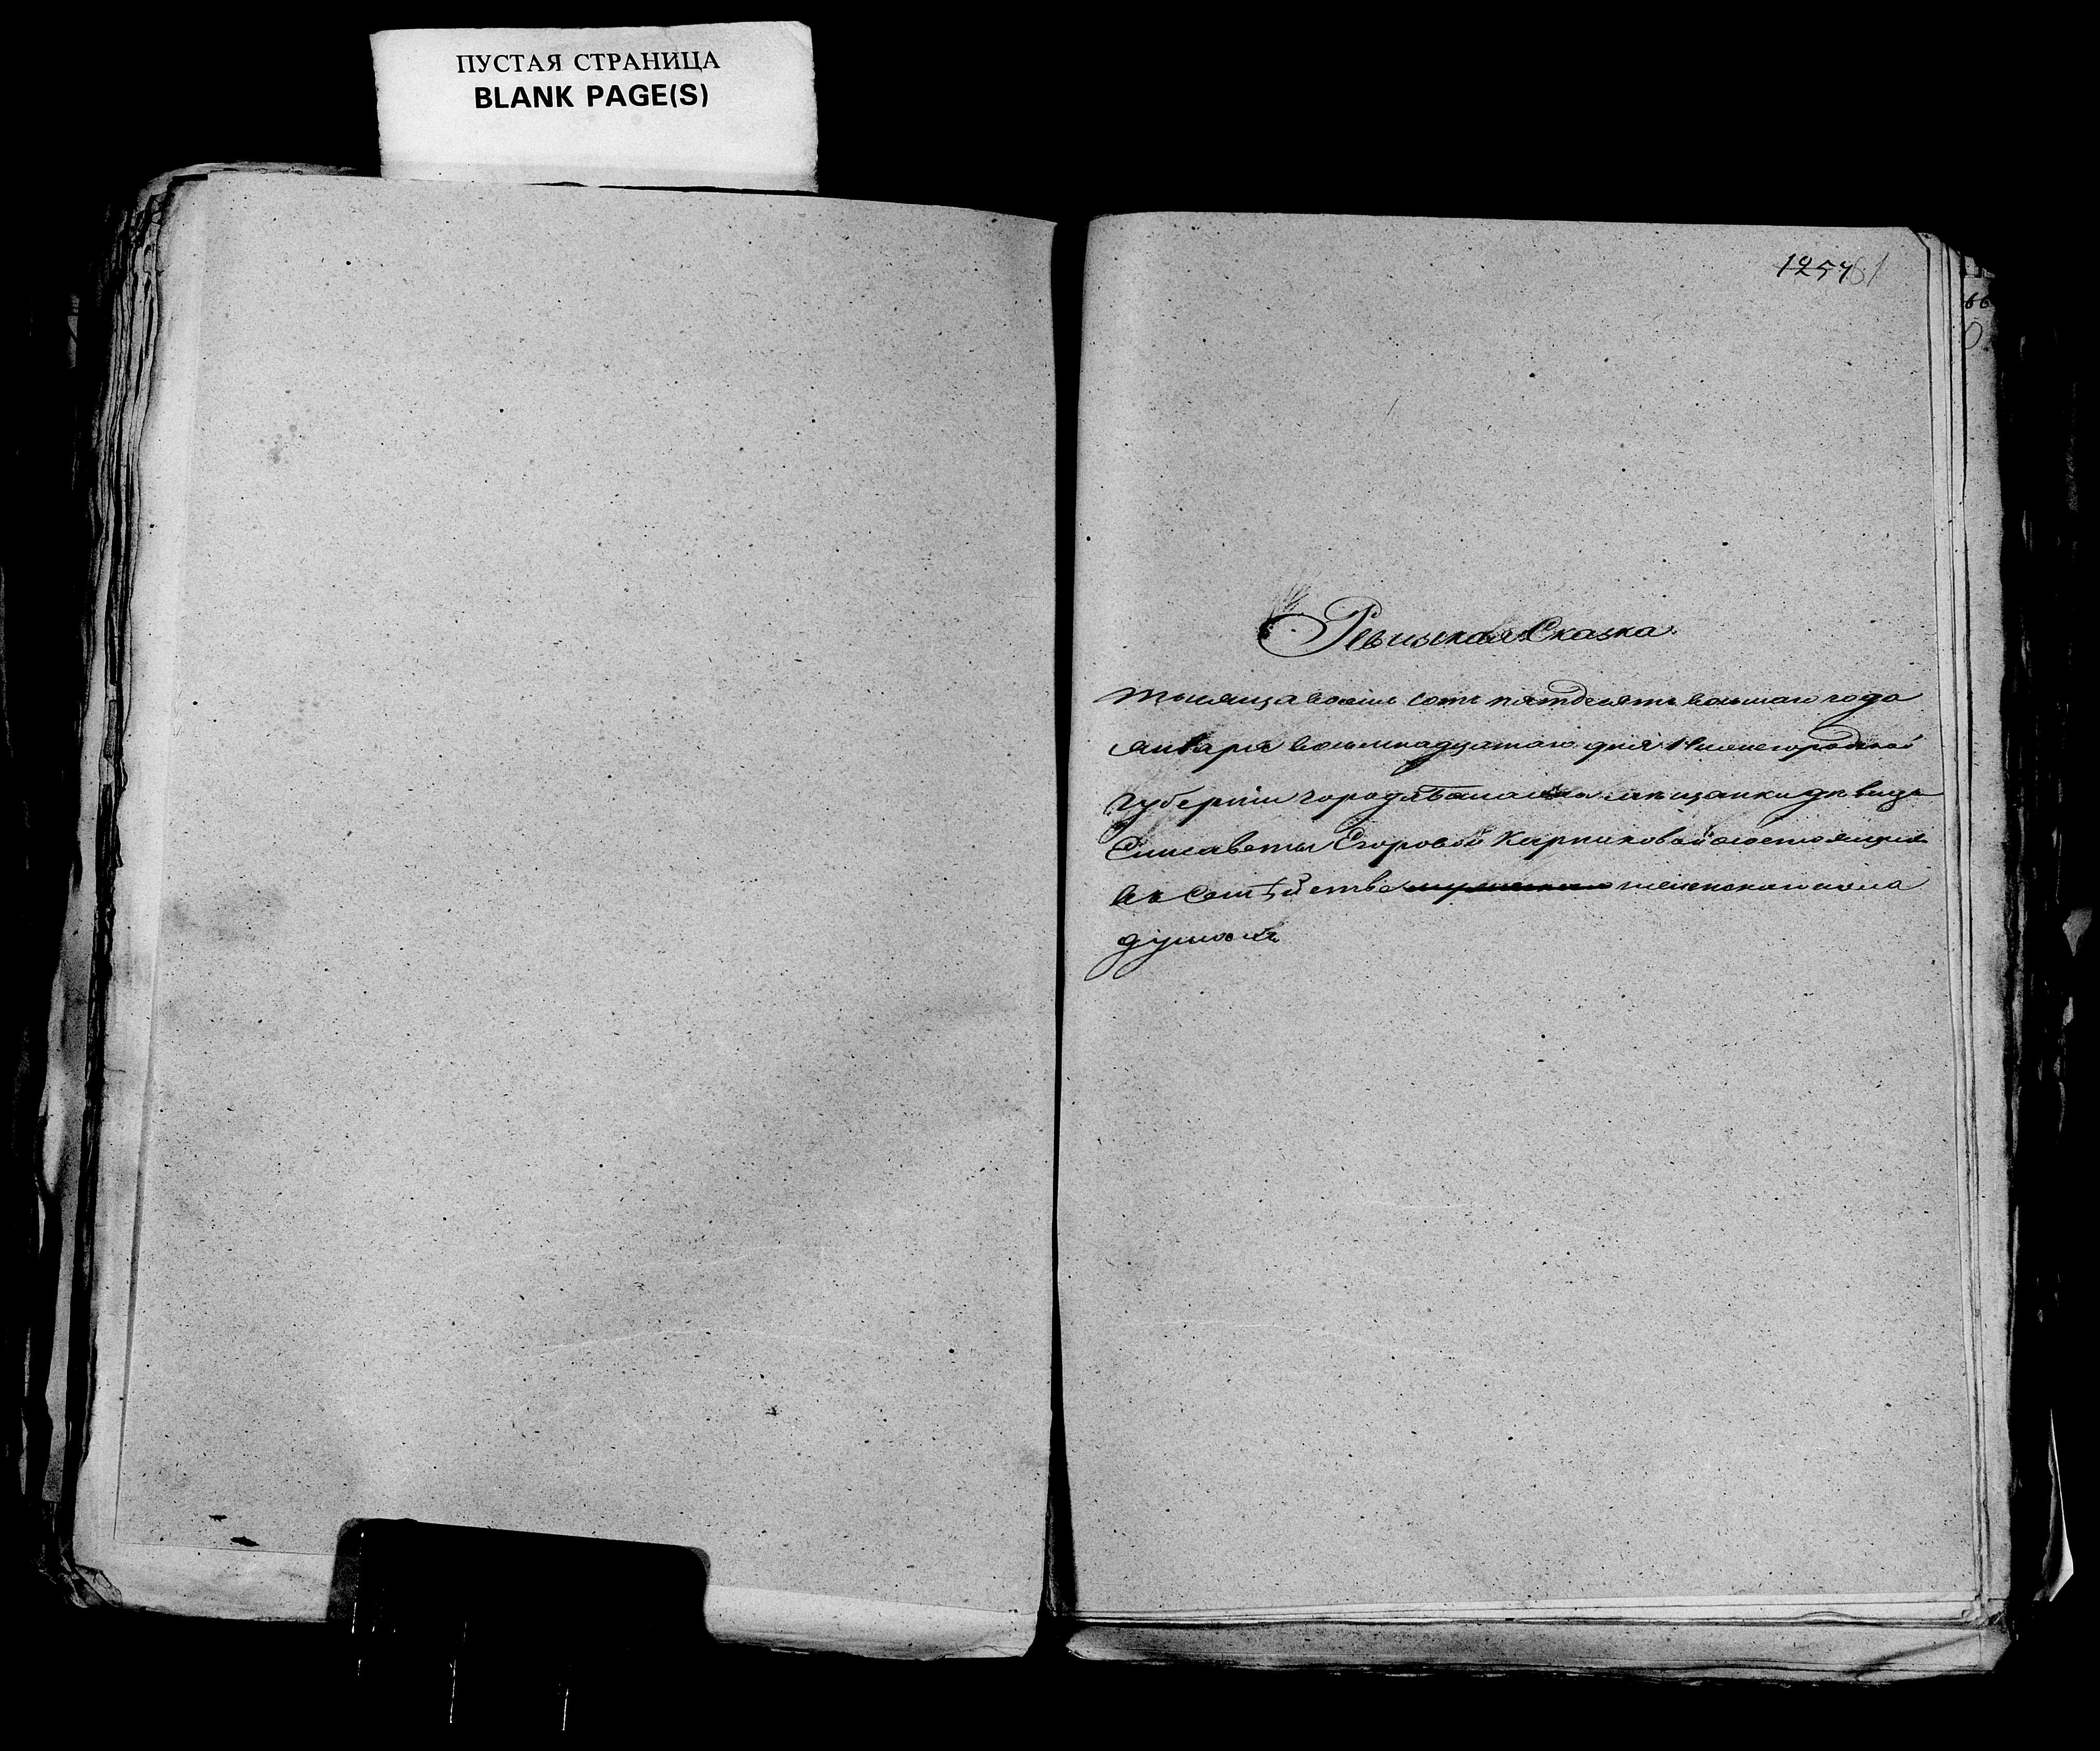 ПУСТАЯ СТРАНИЦА
BLANK PAGE(S)
1254
61
66
Ревизская Сказка.
тысяща восемь сотъ пятдесятъ восмаго года
января восемнадцатаго дня Нижегородской
губерніи города мещанки девицы
Елисаветы Егоровой Карпиковой состоящия
въ Семѣйстве женскаго пола
душахъ